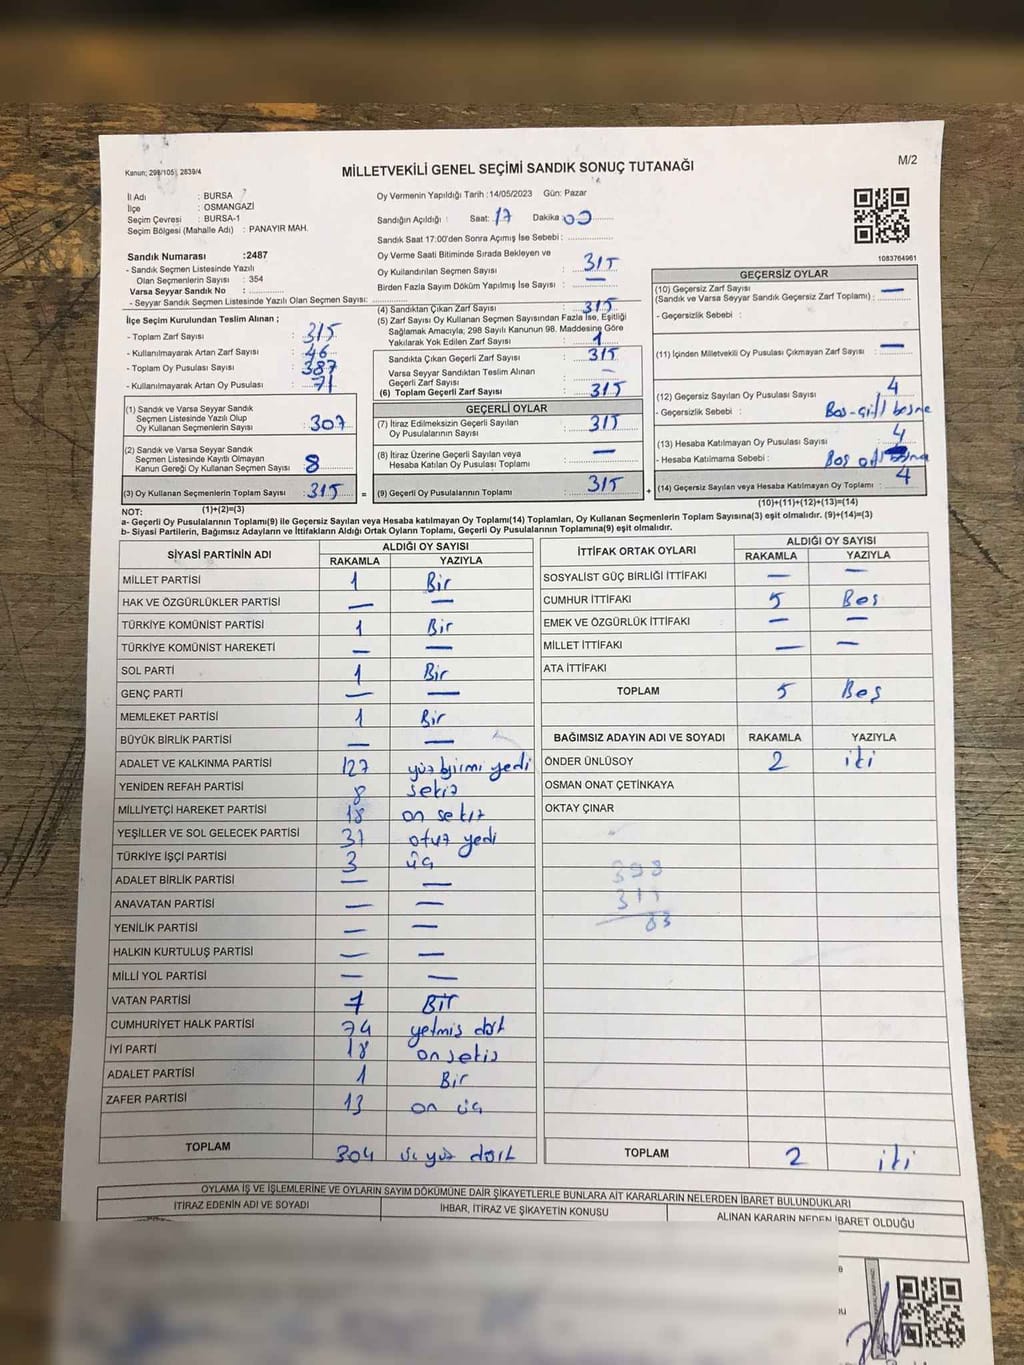 Kanun; 298/105, 2839/4
MİLLETVEKİLİ GENEL SEÇİMİ SANDIK SONUÇ TUTANAĞI
M/2
İl Adı : BURSA
İlçe : OSMANGAZİ
Seçim Çevresi : BURSA-1
Seçim Bölgesi (Mahalle Adı) : PANAYIR MAH.
Sandık Numarası :2487
- Sandık Seçmen Listesinde Yazılı
Olan Seçmenlerin Sayısı : 354
Varsa Seyyar Sandık No :
- Seyyar Sandık Seçmen Listesinde Yazılı Olan Seçmen Sayısı:
Oy Vermenin Yapıldığı Tarih :14/05/2023 Gün: Pazar
Sandığın Açıldığı : Saat: 17 Dakika 00
Sandık Saat 17:00'den Sonra Açımış İse Sebebi :
Oy Verme Saati Bitiminde Sırada Bekleyen ve
Oy Kullandırılan Seçmen Sayısı : 315
Birden Fazla Sayım Döküm Yapılmış İse Sayısı : —
1083764961
İlçe Seçim Kurulundan Teslim Alınan ;
- Toplam Zarf Sayısı : 315
- Kullanılmayarak Artan Zarf Sayısı : 46
- Toplam Oy Pusulası Sayısı : 387
- Kullanılmayarak Artan Oy Pusulası : 71
(1) Sandık ve Varsa Seyyar Sandık
Seçmen Listesinde Yazılı Olup
Oy Kullanan Seçmenlerin Sayısı : 307
(2) Sandık ve Varsa Seyyar Sandık
Seçmen Listesinde Kayıtlı Olmayan
Kanun Gereği Oy Kullanan Seçmen Sayısı : 8
(3) Oy Kullanan Seçmenlerin Toplam Sayısı : 315
(4) Sandıktan Çıkan Zarf Sayısı : 315
(5) Zarf Sayısı Oy Kullanan Seçmen Sayısından Fazla İse, Eşitliği
Sağlamak Amacıyla; 298 Sayılı Kanunun 98. Maddesine Göre
Yakılarak Yok Edilen Zarf Sayısı : 1
Sandıkta Çıkan Geçerli Zarf Sayısı : 315
Varsa Seyyar Sandıktan Teslim Alınan
Geçerli Zarf Sayısı : —
(6) Toplam Geçerli Zarf Sayısı : 315
GEÇERLİ OYLAR
(7) İtiraz Edilmeksizin Geçerli Sayılan
Oy Pusulalarının Sayısı : 315
(8) İtiraz Üzerine Geçerli Sayılan veya
Hesaba Katılan Oy Pusulası Toplamı : —
= (9) Geçerli Oy Pusulalarının Toplamı : 315 +
GEÇERSİZ OYLAR
(10) Geçersiz Zarf Sayısı
(Sandık ve Varsa Seyyar Sandık Geçersiz Zarf Toplamı) : —
- Geçersizlik Sebebi :
(11) İçinden Milletvekili Oy Pusulası Çıkmayan Zarf Sayısı : —
(12) Geçersiz Sayılan Oy Pusulası Sayısı : 4
- Geçersizlik Sebebi :
(13) Hesaba Katılmayan Oy Pusulası Sayısı : 4
- Hesaba Katılmama Sebebi :
(14) Geçersiz Sayılan veya Hesaba Katılmayan Oy Toplamı : 4
(1)+(2)=(3)
(10)+(11)+(12)+(13)=(14)
NOT:
a- Geçerli Oy Pusulalarının Toplamı(9) ile Geçersiz Sayılan veya Hesaba katılmayan Oy Toplamı(14) Toplamları, Oy Kullanan Seçmenlerin Toplam Sayısına(3) eşit olmalıdır. (9)+(14)=(3)
b- Siyasi Partilerin, Bağımsız Adayların ve İttifakların Aldığı Ortak Oyların Toplamı, Geçerli Oy Pusulalarının Toplamına(9) eşit olmalıdır.
SİYASİ PARTİNİN ADI ALDIĞI OY SAYISI
RAKAMLA YAZIYLA
MİLLET PARTİSİ 1 Bir
HAK VE ÖZGÜRLÜKLER PARTİSİ — —
TÜRKİYE KOMÜNİST PARTİSİ 1 Bir
TÜRKİYE KOMÜNİST HAREKETİ — —
SOL PARTİ 1 Bir
GENÇ PARTİ — —
MEMLEKET PARTİSİ 1 Bir
BÜYÜK BİRLİK PARTİSİ — —
ADALET VE KALKINMA PARTİSİ 127 yüz yirmi yedi
YENİDEN REFAH PARTİSİ 8 sekiz
MİLLİYETÇİ HAREKET PARTİSİ 18 on sekiz
YEŞİLLER VE SOL GELECEK PARTİSİ 37 otuz yedi
TÜRKİYE İŞÇİ PARTİSİ 3 üç
ADALET BİRLİK PARTİSİ — —
ANAVATAN PARTİSİ — —
YENİLİK PARTİSİ — —
HALKIN KURTULUŞ PARTİSİ — —
MİLLİ YOL PARTİSİ — —
VATAN PARTİSİ 1 BİR
CUMHURİYET HALK PARTİSİ 74 yetmiş dört
İYİ PARTİ 18 on sekiz
ADALET PARTİSİ 1 Bir
ZAFER PARTİSİ 13 on üç
TOPLAM 304 üç yüz dört
İTTİFAK ORTAK OYLARI ALDIĞI OY SAYISI
RAKAMLA YAZIYLA
SOSYALİST GÜÇ BİRLİĞİ İTTİFAKI — —
CUMHUR İTTİFAKI 5 Beş
EMEK VE ÖZGÜRLÜK İTTİFAKI — —
MİLLET İTTİFAKI — —
ATA İTTİFAKI
TOPLAM 5 Beş
BAĞIMSIZ ADAYIN ADI VE SOYADI RAKAMLA YAZIYLA
ÖNDER ÜNLÜSOY 2 iki
OSMAN ONAT ÇETİNKAYA
OKTAY ÇINAR
TOPLAM 2 iki
OYLAMA İŞ VE İŞLEMLERİNE VE OYLARIN SAYIM DÖKÜMÜNE DAİR ŞİKAYETLERLE BUNLARA AİT KARARLARIN NELERDEN İBARET BULUNDUKLARI
İTİRAZ EDENİN ADI VE SOYADI İHBAR, İTİRAZ VE ŞİKAYETİN KONUSU ALINAN KARARIN NEDEN İBARET OLDUĞU